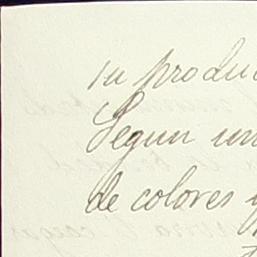 su produc
Segun un
de colores y